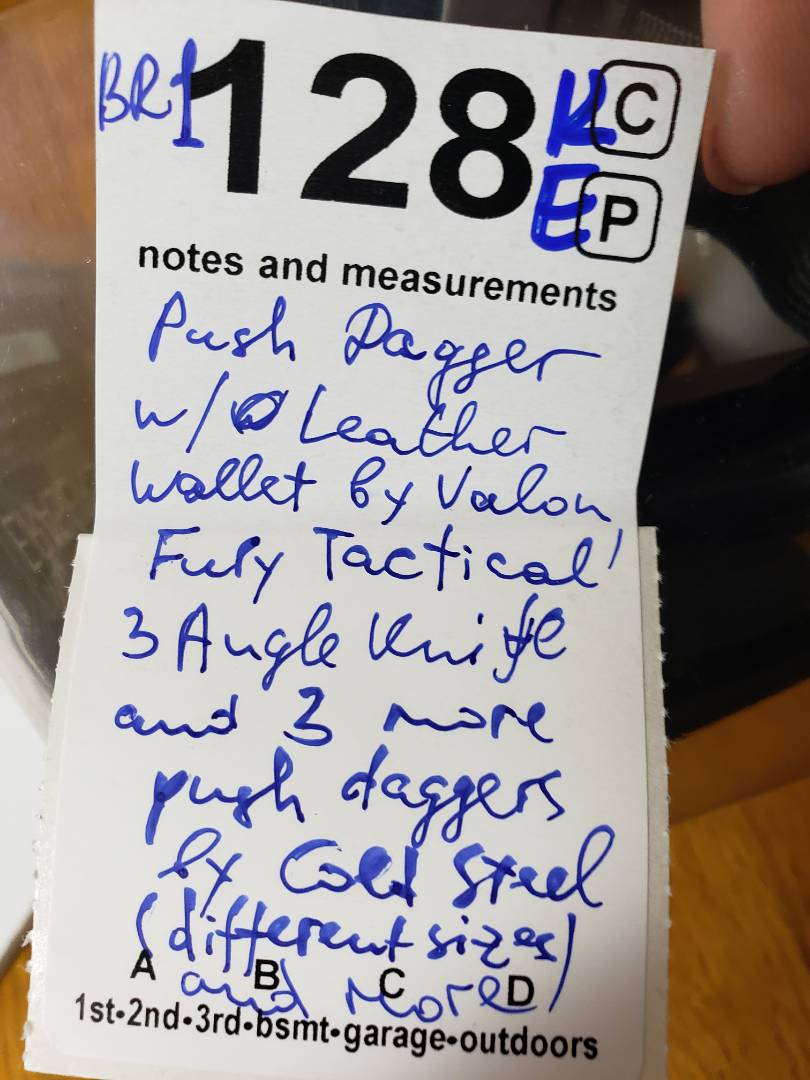 BR1 128 K C
E P
notes and measurements
Push Dagger
w/ Leather
wallet by Valon
Fury Tactical
3 Angle Knife
and 3 more
push daggers
by Cold Steel
(different sizes)
A B C D
and more
1st•2nd•3rd•bsmt•garage•outdoors